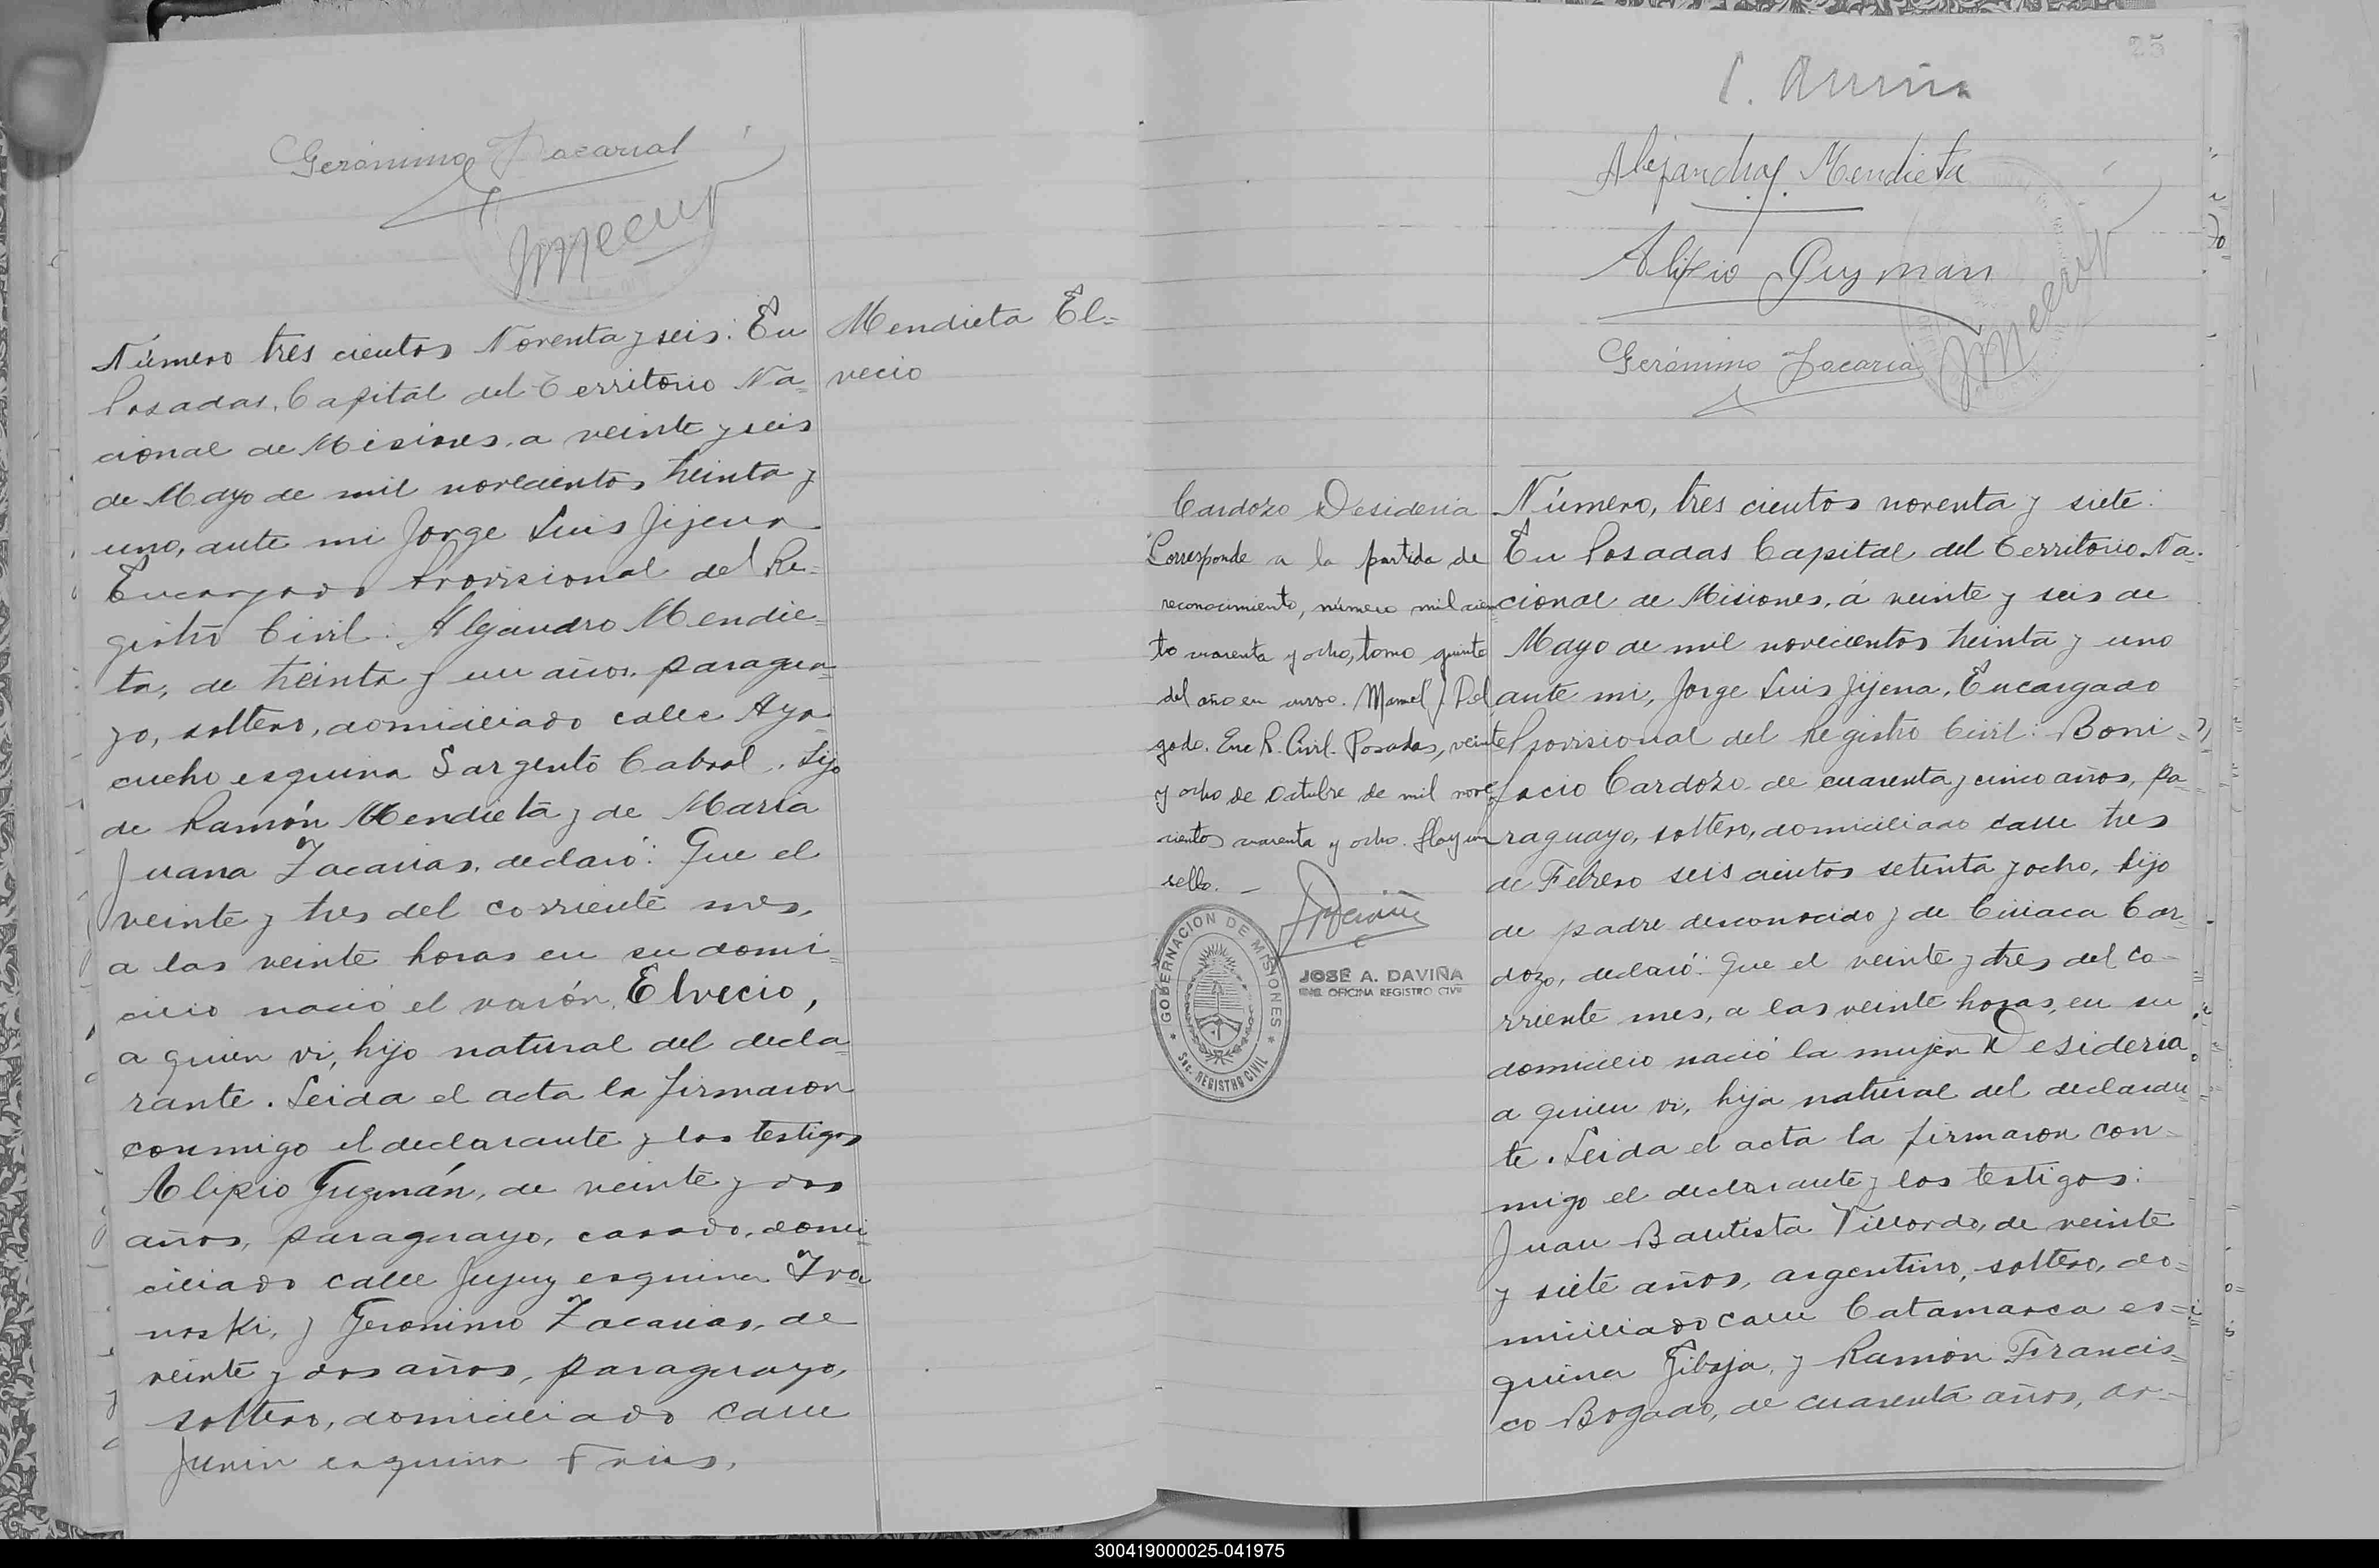 Gerónimo Zacarias
Número tres cientos Noventa y seis: En
Posadas, Capital del Territorio Na=
cional de Misiones, a veinte y seis
de Mayo de mil novecientos treinta y
uno, ante mi Jorge Luis Jijena
Encargado Provisional del Re=
gistro Civil: Alejandro Mendie=
ta, de treinta y un años, paragua=
yo, soltero, domiciliado calle Aya
cucho esquina Sargento Cabral, hijo
de Ramón Mendieta y de Maria
Juana Zacarias, declaró: Que el
veinte y tres del corriente mes,
a las veinte horas en su domi=
cilio nació el varón, Elvecio,
a quien vi, hijo natural del decla=
rante. Leida el acta la firmaron
conmigo el declarante y los testigos
Alipio Guzmán, de veinte y dos
años, paraguayo, casado, domi=
ciliado calle Jujuy esquina Iva
noski, y Geronimo Zacarias, de
veinte y dos años, paraguayo,
soltero, domiciliado calle
Junin esquina Frias.
Mendieta El=
vecio
25
Alejandro Mendieta
Alipio Guzman
Gerónimo Zacaria
Cardozo Desideria
Corresponde a la partida de
reconocimiento, número mil cien
to cuarenta y ocho, tomo quinto
del año en curso. Manuel J. Del
gado. Enc R. Civil. Posadas, veinte
y ocho de Octubre de mil nove
cientos cuarenta y ocho. Hay un
sello. —
GOBERNACION DE MISIONES
Sec. REGISTRO CIVIL
JOSE A. DAVIÑA
ENC. OFICINA REGISTRO CIVIL
Número, tres cientos noventa y siete:
En Posadas Capital del Territorio Na=
cional de Misiones, á veinte y seis de
Mayo de mil novecientos treinta y uno
ante mi, Jorge Luis Jijena, Encargado
Provisional del Registro Civil: Boni=
facio Cardozo de cuarenta y cinco años, pa=
raguayo, soltero, domiciliado calle tres
de Febrero seis cientos setenta y ocho, hijo
de padre desconocido y de Ciriaca Car=
dozo, declaró: Que el veinte y tres del co=
rriente mes, a las veinte horas, en su
domicilio nació la mujer Desideria
a quien vi, hija natural del declaran
te. Leida el acta la firmaron con=
migo el declarante y los testigos:
Juan Bautista Villordo, de veinte
y siete años, argentino, soltero, do=
miciliado calle Catamarca es=
quina Gibaja, y Ramón Francis=
co Bogado, de cuarenta años, ar=
300419000025-041975